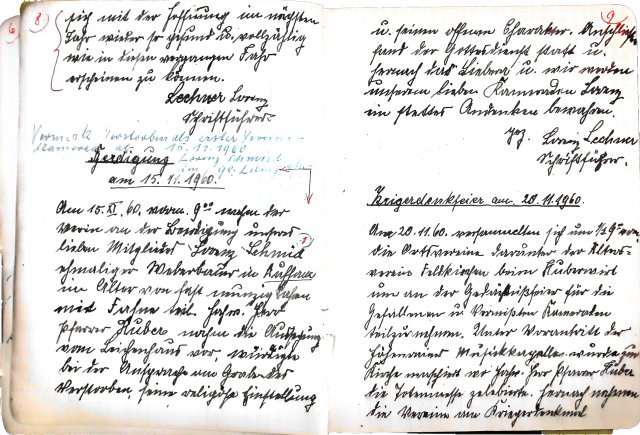 8)
sich mit der Hoffnung im nächsten
Jahr wieder so gesund u. vollzählig
wie in diesem vergangen Jahr
erscheinen zu können.
Lechner Lorenz
Schriftführer
Vermerk Verstorben als erster Vereins-
kamerad ab 10.11.1960
Berdigung Lorenz Schmid
im 90. Lebens
am 15.11.1960.
Am 15. XI. 60. vorm. 9 00 nahm der
Verein an der Beerdigung unseres
lieben Mitgliedes Lorenz Schmid
ehmaliger Weberbauer in
im Alter von fast neunzig Jahren
mit Fahne teil. Hochw. Herr
Pfarrer Huber nahm die Aussegnung
vom Leichenhaus vor, würdigte
bei der Ansprache am Grabe des
Verstorben, seine religiöse Einstellung
9.
u. seinen offenen Charakter. Anschließend
fand der Gottesdienst statt u.
hernach das Libera u. wir werden
unserem lieben Kameraden Lorenz
ein stettes Andenken bewahren.
gez. Lorenz Lechner
Schriftführer.
Krigerdenkfeier am 20.11.1960.
Am 20.11.60. versammelten sich um ½ 9
die Ortsvereine darunter der
verein beim Huberwirt
um an der Gedächtnißfeier für die
Gefallenen u. Vermißten Kameraden
teilzunehmen. Unter Vorantritt der
Musikkapelle wurde zur
Kirche marschiert wo Hochw. Herr Pfarrer Huber
die Totenmesse zelebrierte. Hernach nahmen
die Vereine am Kriegerdenkmal